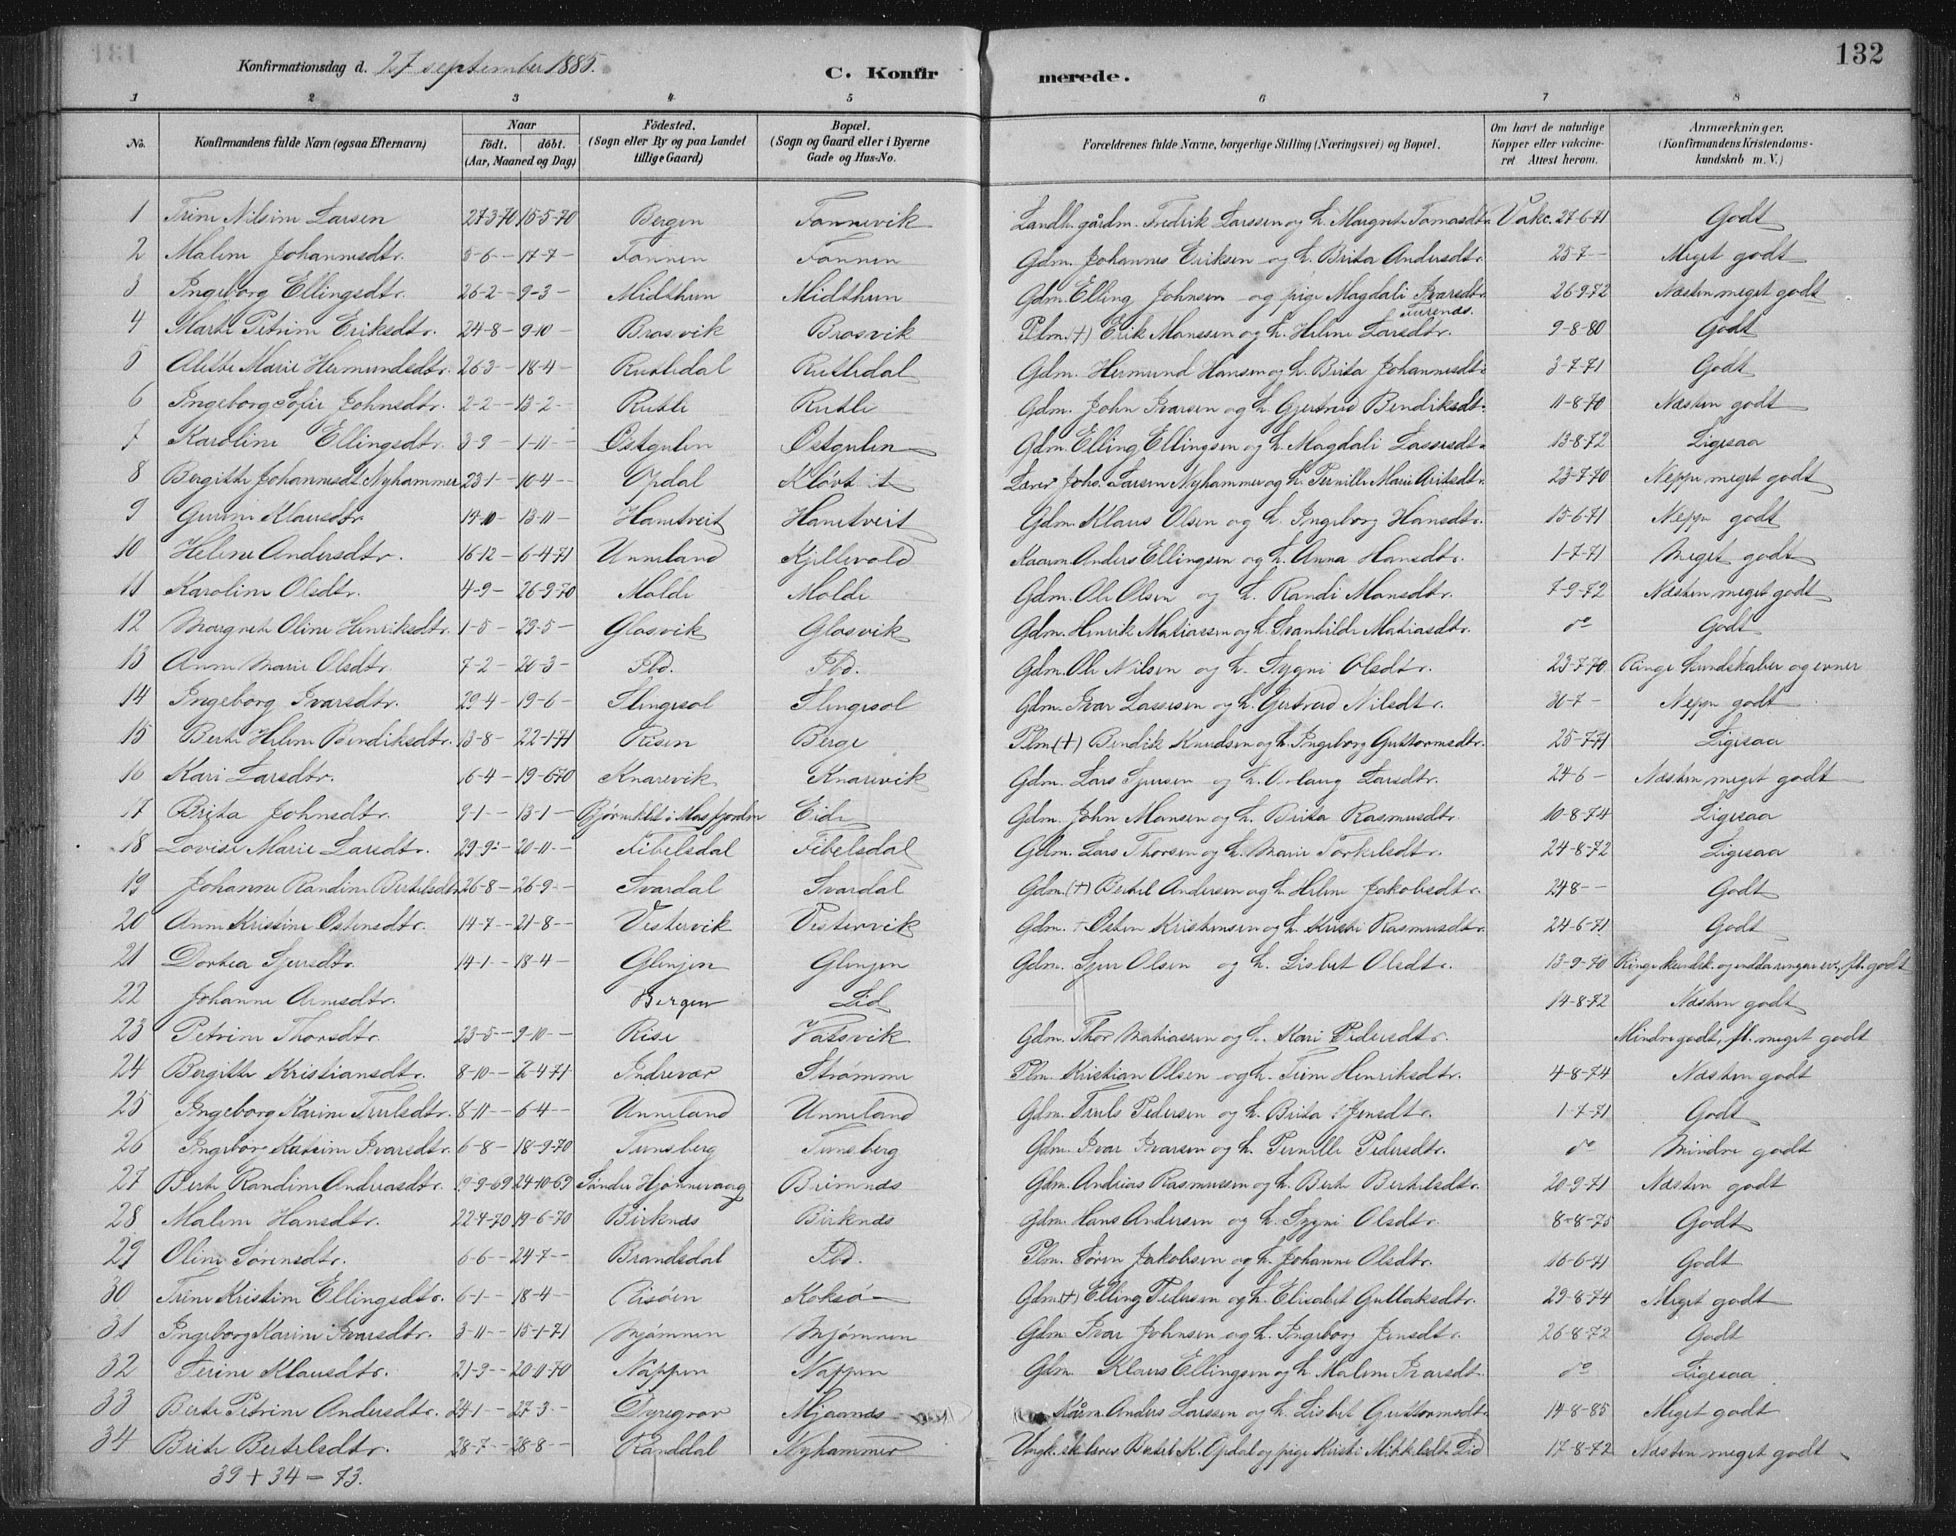 131
132
Konfirmationsdag d. 27 september 1885.
C. Konfirmerede.
1 2 3 4 5 6 7 8
No. | Konfirmandens fulde Navn (ogsaa Efternavn) | Naar født. døbt. (Aar, Maaned og Dag) | Fødested. (Sogn eller By og paa Landet tillige Gaard) | Bopæl. (Sogn og Gaard eller i Byerne Gade og Hus-No. | Forældrenes fulde Navne, borgerlige Stilling (Næringsvei) og Bopæl. | Om havt de naturlige Kopper eller vakcineret Attest herom. | Anmærkninger. (Konfirmandens Kristendomskundskab m. V.)
1 Trine Nilsine Larsen 27-3-70 15-5-70 Bergen Fonnevik Landh. gårdm. Fredrik Larssen og h. Margrete Tomasdtr. Vakc. 27-6-71 Godt
2 Malene Johannesdtr. 5-6-- 17-7-- Fonnen Fonnen Gdm. Johannes Eriksen og h. Brita Andersdtr. 25-7-- Meget godt
3 Ingeborg Ellingsdtr. 26-2-- 9-3-- Midthun Midthun Gdm. Elling Johnsen og pige Magdali Ivarsdtr. 26-9-72 Næsten meget godt
4 Marte Petrine Eriksdtr. 24-8-- 9-10-- Brosvik Brosvik Plm. (+) Erik Monssen og h. Helene Larsdtr. 9-8-80 Godt
5 Alette Marie Hermundsdtr. 26-3-- 18-4-- Rutledal Rutledal Gdm. Hermund Hansen og h. Brita Johannesdtr. 3-7-71 Godt
6 Ingeborg Sofie Johnsdtr. 2-2-- 13-2-- Rutle Rutle Gdm. John Ivarsen og h. Gjertrud Bendiksdtr. 11-8-70 Næsten godt
7 Karoline Ellingsdtr. 3-9-- 1-11-- Østgulen Østgulen Gdm. Elling Ellingsen og h. Magdali Lassesdtr. 13-8-72 Ligesaa
8 Bergitte Johannesdt. Nyhammer 23-1-- 10-4-- Opdal Kløvtvit Lærer Johs. Larsen Nyhammer og h. Pernille Marie 23-7-70 Neppe meget godt
9 Gurine Klausdtr. 14-10 13-11-- Hantveit Hantveit Gdm. Klaus Olsen og h. Ingeborg Hansdtr. 15-6-71 Neppe godt
10 Helene Andersdtr. 16-12-- 6-4-71 Unneland Kjellevold Kaarm. Anders Ellingsen og h. Anna Hansdtr. 1-7-71 Meget godt
11 Karoline Olsdtr. 4-9-- 26-9-70 Molde Molde Gdm. Ole Olsen og h. Randi Monsdtr. 7-9-72 Næsten meget godt
12 Margrete Oline Henriksdtr. 1-5-- 29-5-- Glosvik Glosvik Gdm. Henrik Matiassen og h. Svanhilde Matiasdtr. do Godt
13 Anne Marie Olsdtr. 7-2-- 20-3-- Flo. Flo. Gdm. Ole Nilsen og h. Sygni Olsdtr. 23-7-70 Ringe kundskaber og evner
14 Ingeborg Ivarsdtr. 29-4 19-6-- Slengesol Slengesol Gdm. Ivar Lassesen og h. Gertrud Nilsdtr. 30-7-- Neppe godt
15 Berte Helene Bendiksdtr. 13-8-- 22-1-71 Risen Berge Plm. (+) Bendik Knudsen og h. Ingeborg Guttormsdtr. 25-7-71 Ligesaa
16 Kari Larsdtr. 16-4-- 19-6-70 Knarevik Knarevik Gdm. Lars Sjursen og h. Larsdtr. 24-6-- Næsten meget godt
17 Brita Johnsdtr. 9-1-- 13-1-- i Masfjorden Eide Gdm. John Monsen og h. Brita Rasmusdtr. 10-8-74 Ligesaa
18 Lovise Marie Larsdtr. 29-9-- 20-11-- Fibelsdal Fibelsdal Gdm. Lars Thorsen og h. Marie Torkelsdtr. 24-8-72 Ligesaa
19 Johanne Randine Bertelsdtr. 26-8-- 26-9-- Svardal Svardal Gdm. (+) Bertel Andersen og h. Helene Jakobsdtr. 24-8-- Godt
20 Anne Kristine Østensdtr. 14-7-- 21-8-- Vestervik Vestervik Gdm. + Østen Kristensen og h. Kristi Rasmusdtr. 24-6-71 Godt
21 Dortea Sjursdtr. 14-1-- 18-4-- Glenjen Glenjen Gdm. Sjur Olsen og h. Lisbet Olsdtr. 13-9-70 Ringe kundsk. og fl. godt
22 Johanne Arnesdtr. Bergen Lid 14-8-72 Næsten godt
23 Petrine Thorsdtr. 23-5-- 9-10-- Rise Vatsvik Gdm. Thor Matiassen og h. Kari Pedersdtr. Mindre godt, fl. meget godt
24 Bergitte Kristiansdtr. 8-10-- 2-4-71 Indrevær Strømme Plm. Kristian Olsen og h. Trine Henriksdtr. 4-8-74 Næsten godt
25 Ingeborg Karine Trulsdtr. 8-11-- 6-4-- Unneland Unneland Gdm. Truls Pedersen og h. Brita Jensdtr. 1-7-71 Godt
26 Ingebor Katrine Ivarsdtr. 6-8-- 18-9-70 Tunsberg Tunsberg Gdm. Ivar Ivarsen og h. Pernille Pedersdtr. do Mindre godt
27 Berte Randine Andreasdtr. 9-9-69 24-10-69 Sønder Hjønnevaag Brimnes Gdm. Andreas Rasmussen og h. Berte Bertelsdtr. 20-9-71 Næsten godt
28 Malene Hansdtr. 22-4-70 19-6-70 Birknes Birknes Gdm. Hans Andersen og h. Sygni Olsdtr. 8-8-75 Godt
29 Oline Sørensdtr. 6-6-- 24-7-- Brandsdal Flo. Plm. Søren Jakobsen og h. Johanne Olsdtr. 16-6-71 Godt
30 Trine Kristine Ellingsdtr. 6-1-- 18-4-- Risøen Koksø Gdm. (+) Elling Pedersen og h. Elisabet Gullaksdtr. 29-8-74 Meget godt
31 Ingeborg Karine Ivarsdtr. 3-11-- 15-1-71 Mjømnen Mjømnen Gdm. Ivar Johnsen og h. Ingeborg Jensdtr. 26-8-72 Godt
32 Serine Klausdtr. 21-9-- 20-11-70 Nappen Nappen Gdm. Klaus Ellingsen og h. Malene Ivarsdtr. do Ligesaa
33 Berte Petrine Andersdtr. 24-1-- 27-3-- Dyregrov Mjaanes Kårm. Anders Larssen og h. Lisbet Guttormsdtr. 14-8-85 Meget godt
34 Brite Bertelsdtr. 28-7-- 28-8-- Randdal Nyhammer Ungk. skolelærer Bertel K. Opdal og pige Kristi Mikkelsdtr. Lid 17-8-72 Næsten meget godt
39 + 34 = 73.